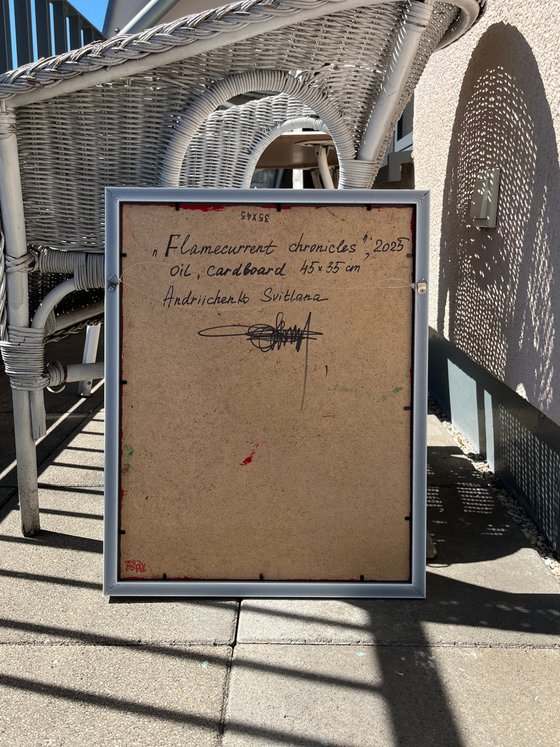 35x45
„Flamecurrent chronicles", 2025
oil, cardboard 45x35 cm
Andriichenko Svitlana